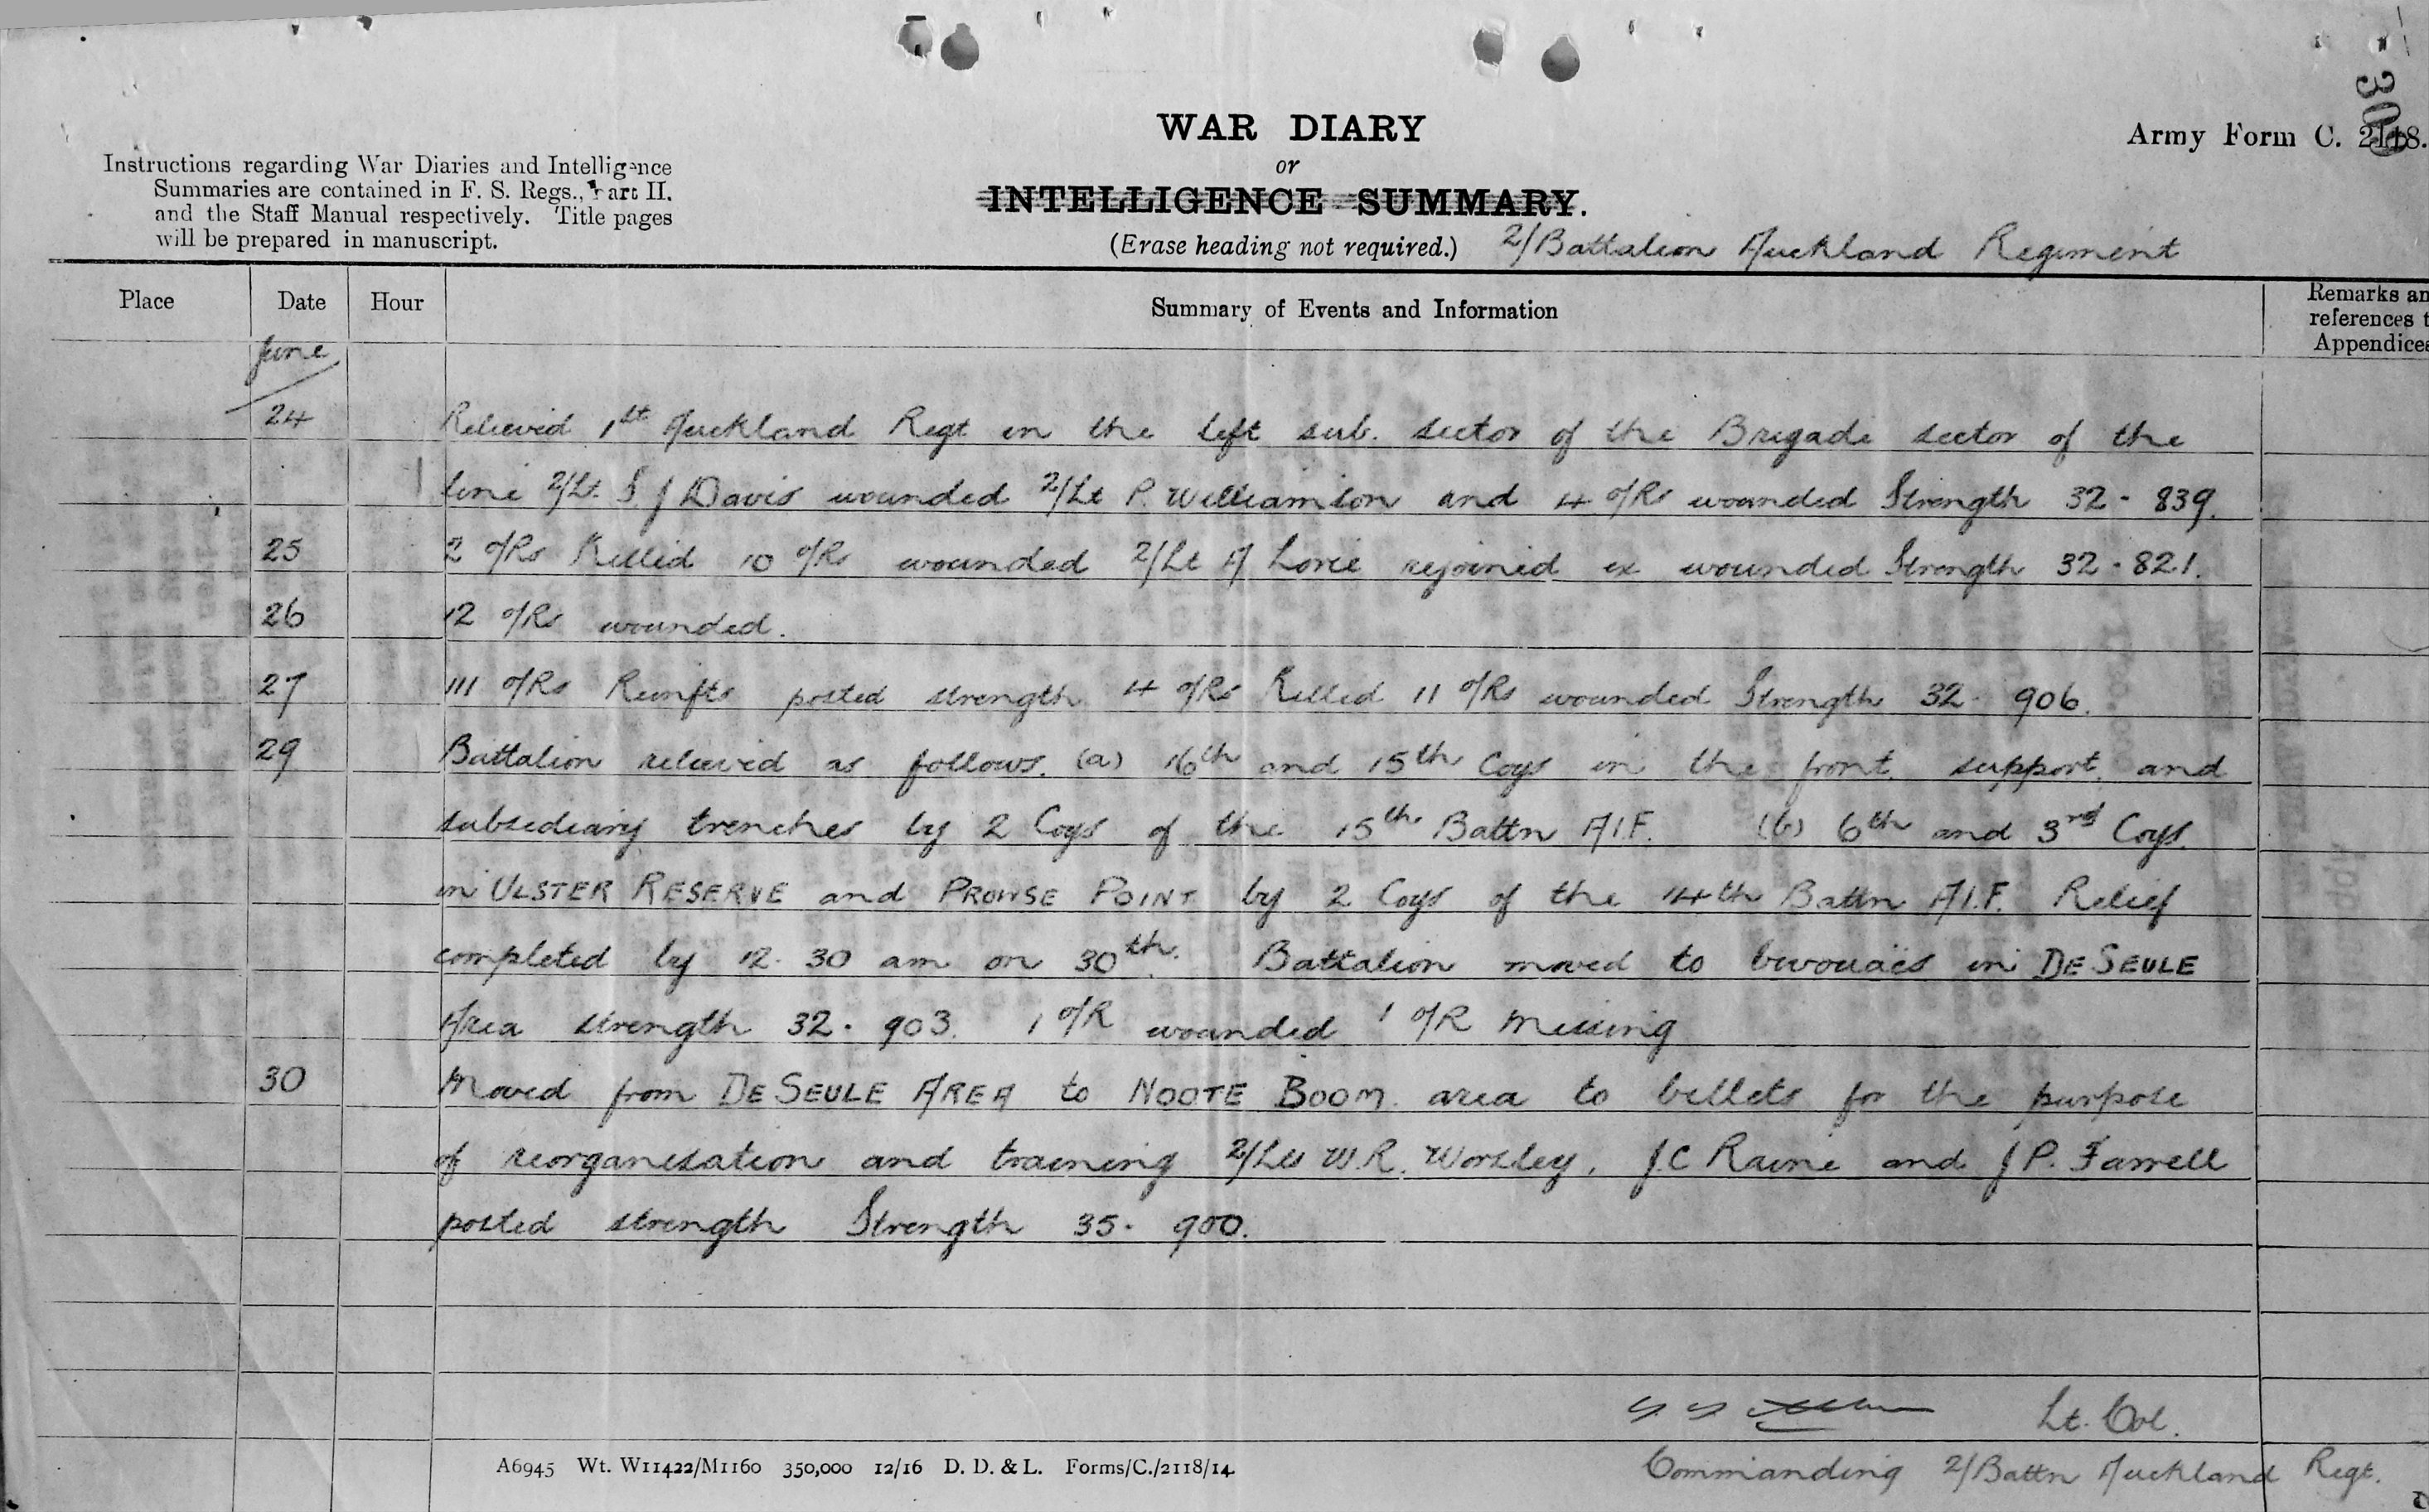 300
WAR DIARY
or
INTELLIGENCE SUMMARY.
(Erase heading not required.) 2/Battalion Auckland Regiment
Army Form C. 2118.
Instructions regarding War Diaries and Intelligence
Summaries are contained in F. S. Regs., Part II.
and the Staff Manual respectively. Title pages
will be prepared in manuscript.
Place Date Hour Summary of Events and Information Remarks an
references t
Appendice
June
24 Relieved 1st Auckland Regt in the left sub. sector of the Brigade sector of the
line 2/Lt. S J Davis wounded 2/Lt P. Williamson and 4 O/Rs wounded Strength 32 - 839.
25 2 O/Rs Killed 10 O/Rs wounded 2/Lt A Lorie rejoined ex wounded Strength 32 - 821.
26 12 O/Rs wounded.
27 111 O/Rs Reinfts posted strength 4 O/Rs Killed 11 O/Rs wounded Strength 32 - 906.
29 Battalion relieved as follows. (a) 16th and 15th Coys in the front, support, and
subsediary trenches by 2 Coys of the 15th Battn A.I.F. (b) 6th and 3rd Coys.
in ULSTER RESERVE and PROWSE POINT by 2 Coys of the 14th Battn A.I.F. Relief
completed by 12. 30 am on 30th. Battalion moved to bivouacs in DE SEULE
Area strength 32. 903. 1 O/R wounded 1 O/R Missing
30 Moved from DE SEULE AREA to NOOTE BOOM. area to billets for the purpose
of reorganisation and training 2/Lts W.R. Worsley, J.C Raine and J P. Farrell
posted strength Strength 35. 900.
Lt. Col.
Commanding 2/Battn Auckland Regt.
A6945 Wt. W11422/M1160 350,000 12/16 D. D. & L. Forms/C./2118/14